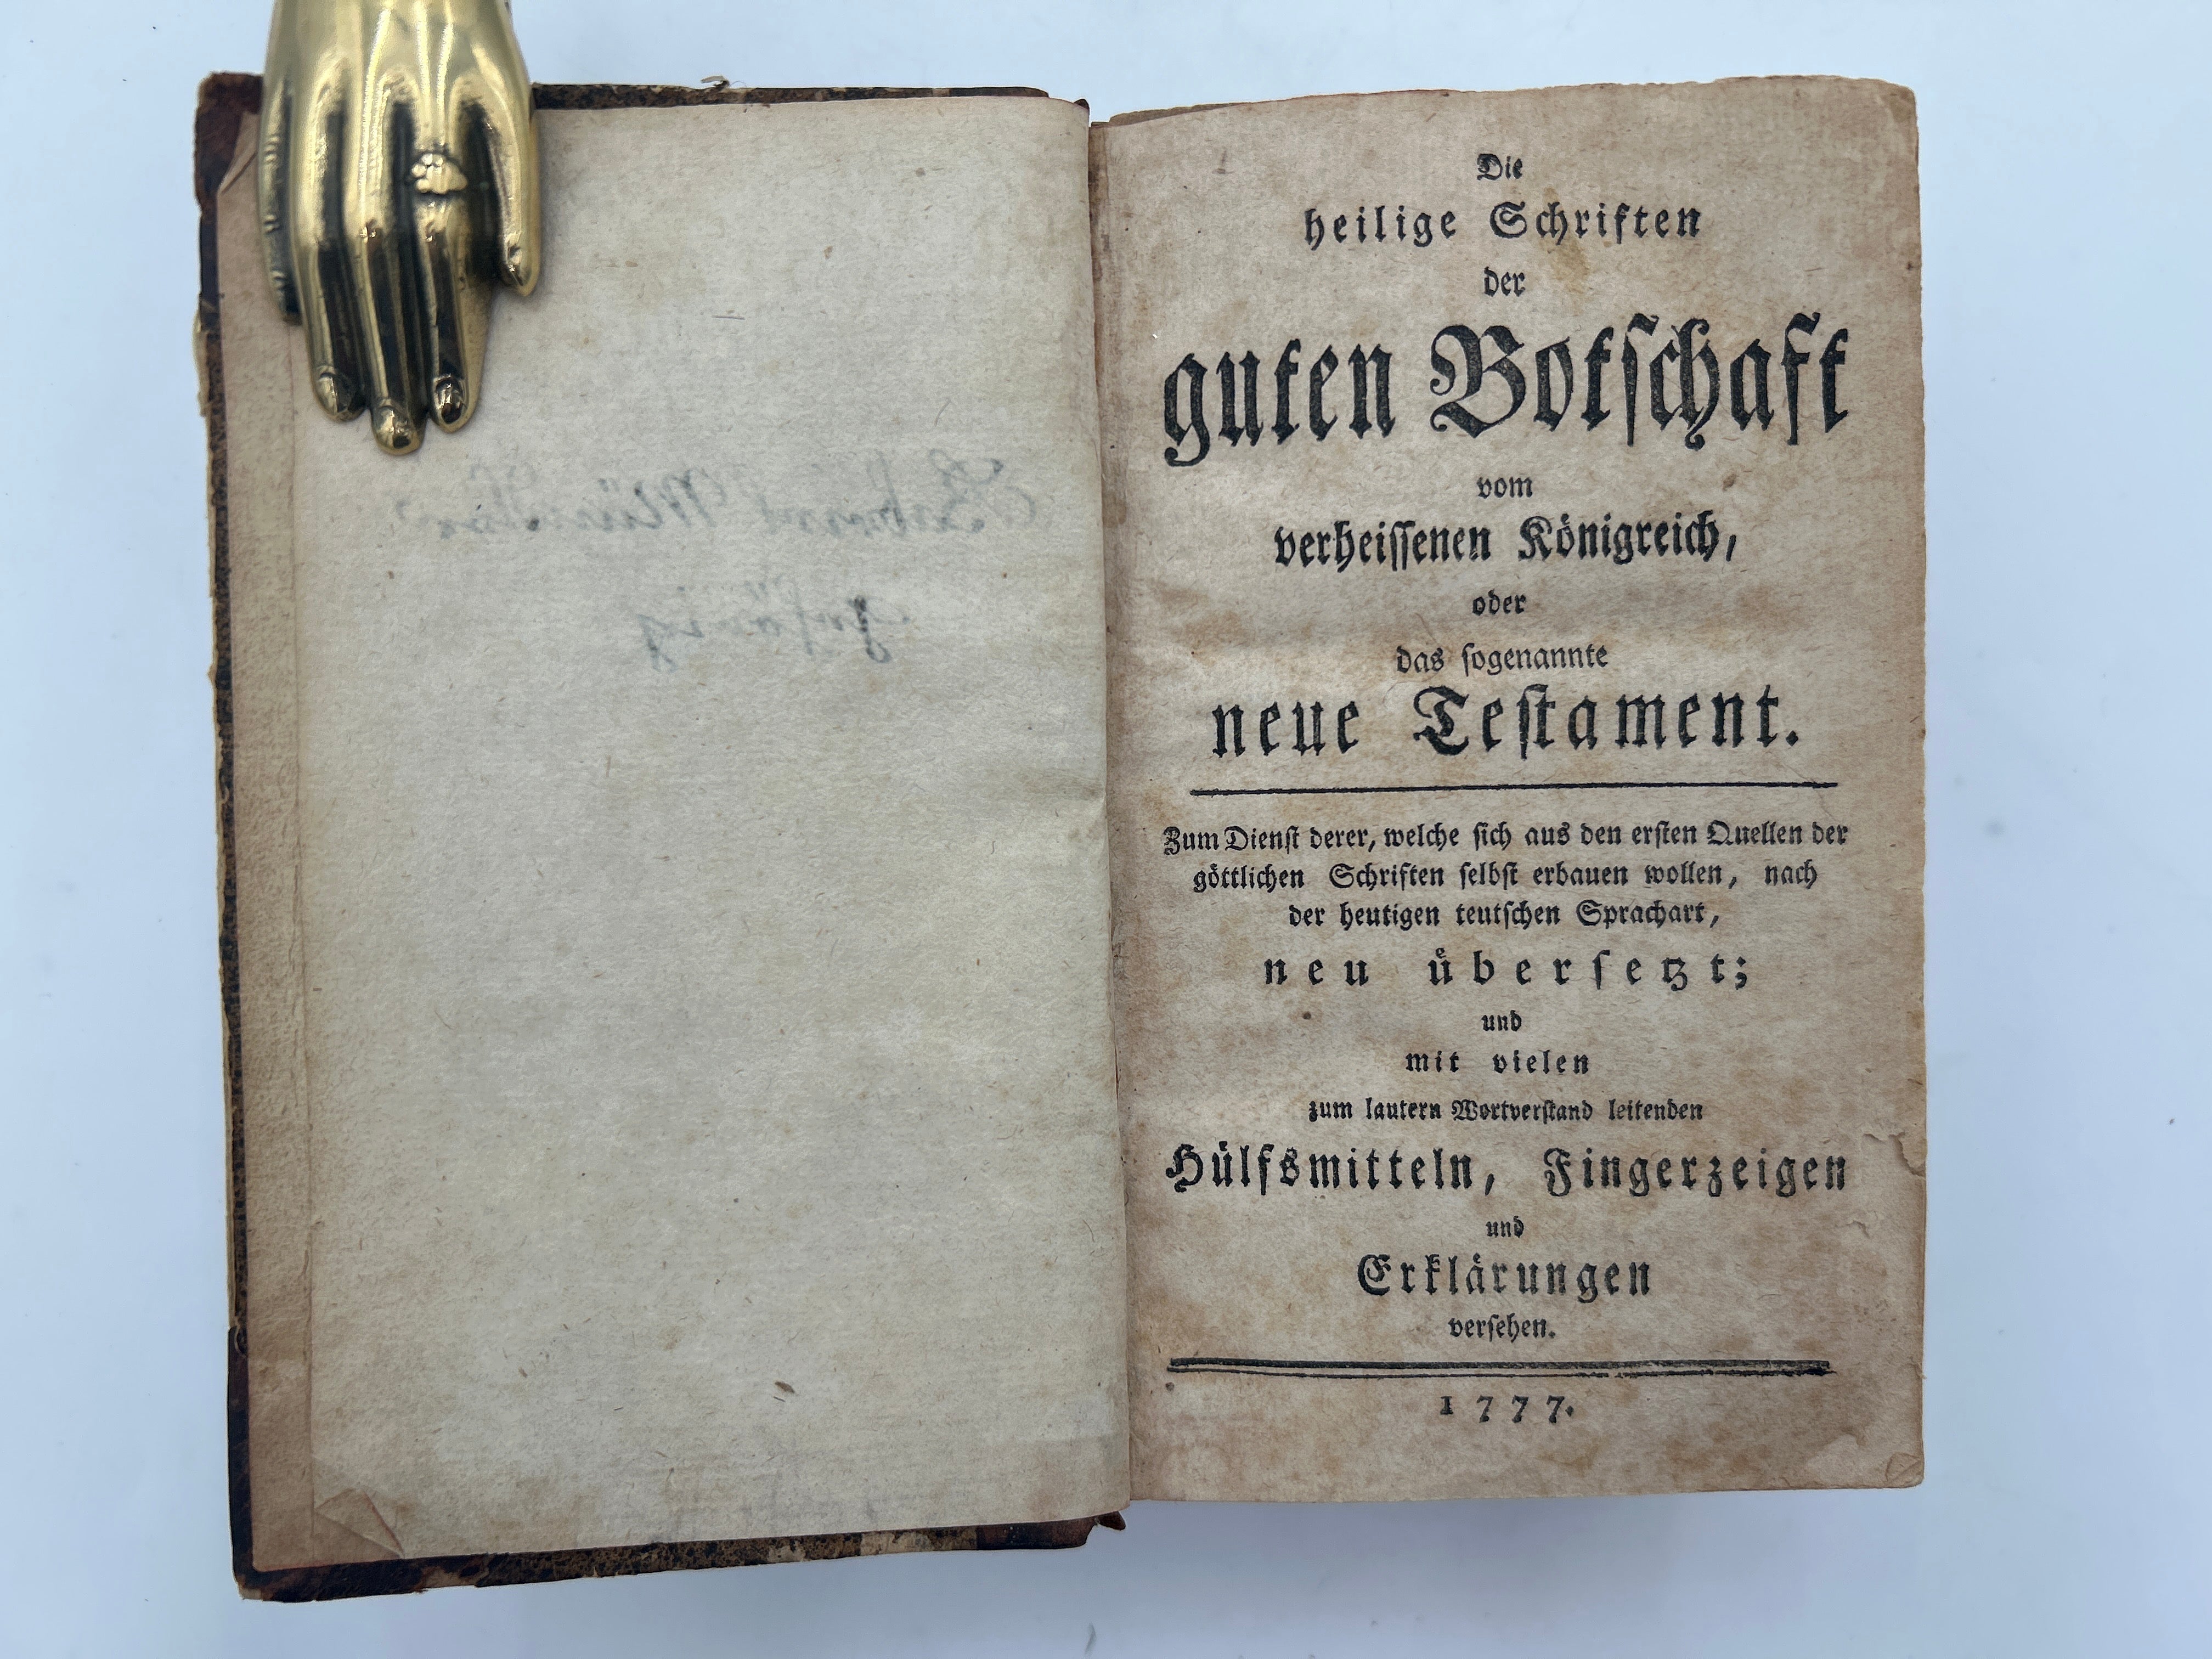 Die
heilige Schriften
der
guten Botſchaft
vom
verheiſſenen Königreich,
oder
das ſogenannte
neue Teſtament.
Zum Dienſt derer, welche ſich aus den erſten Quellen der
göttlichen Schriften ſelbſt erbauen wollen, nach
der heutigen teutſchen Sprachart,
neu überſetzt;
und
mit vielen
zum lautern Wortverſtand leitenden
Hülfsmitteln, Fingerzeigen
und
Erklärungen
verſehen.
1777.